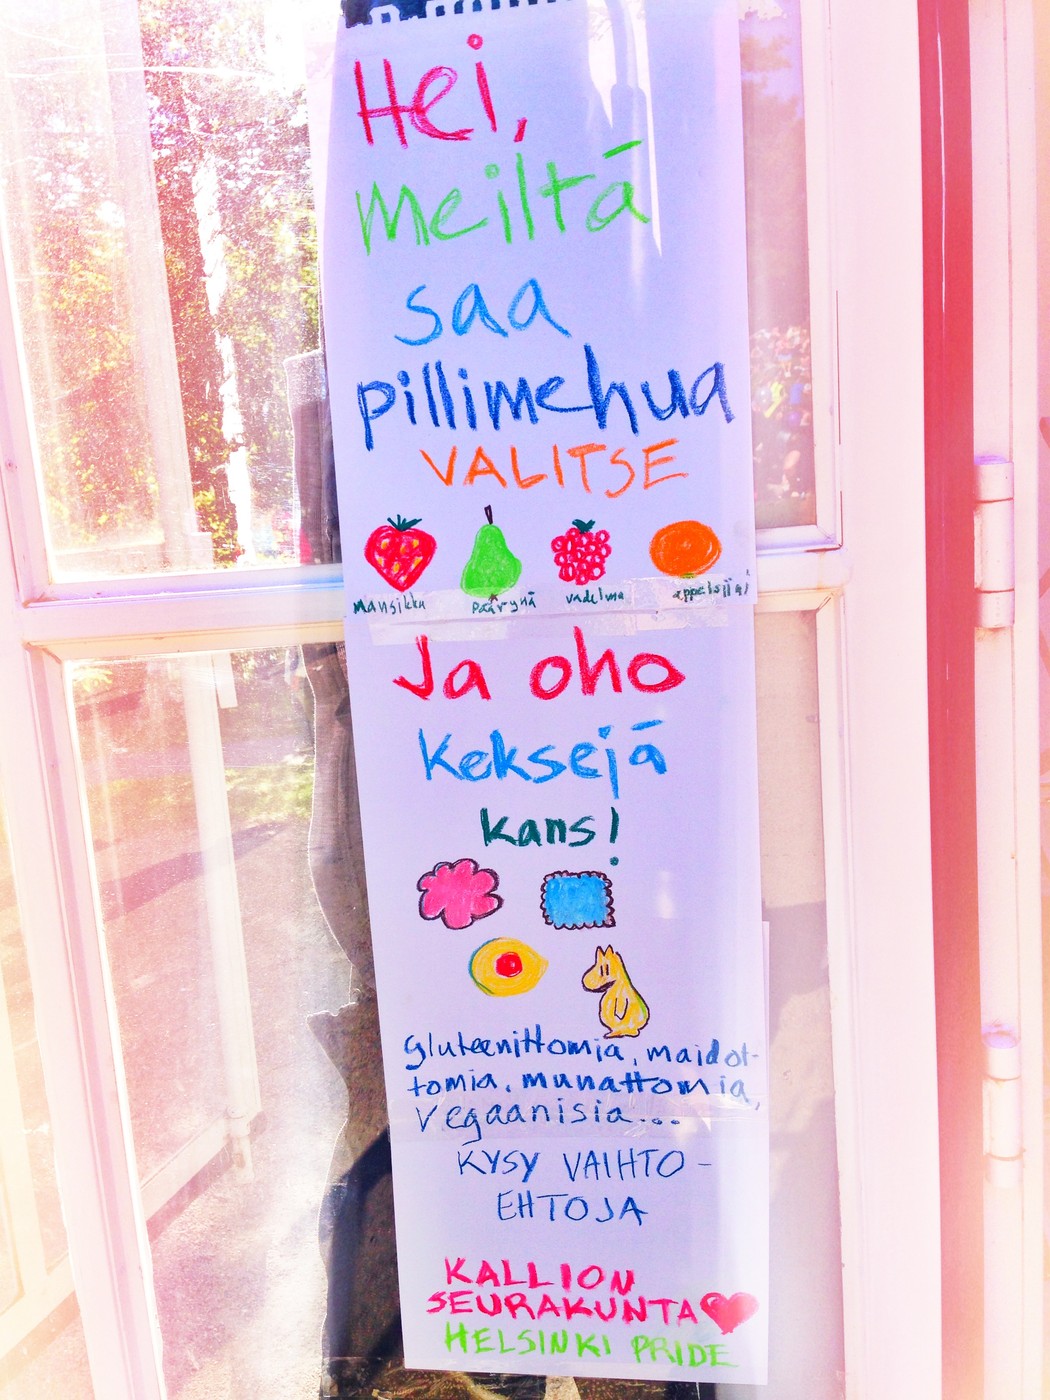 Hei,
meiltä
saa
pillimehua
VALITSE
mansikka päärynä vadelma appelsiini
Ja oho
keksejä
kans!
gluteenittomia, maidot-
tomia, munattomia,
vegaanisia...
KYSY VAIHTO-
EHTOJA
KALLION
SEURAKUNTA
HELSINKI PRIDE